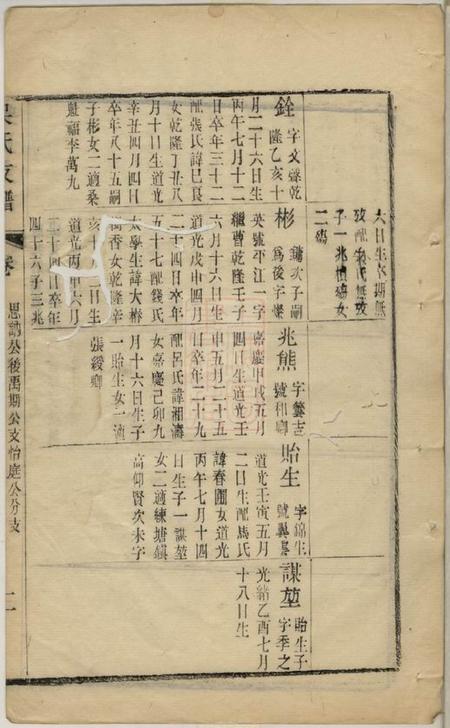 大日生卒期無
攷配朱氏無攷
子一兆禎殤女
二殤
銓
字文聲乾
隆乙亥十
月二十六日生
丙午七月十二
日卒年三十二
配張氏諱巳良
女乾隆丁丑八
月十日生道光
辛丑四月四日
卒年八十五嗣
子彬女二適桑
魁福李萬九
彬
鏞次子嗣
爲後字馨
英號平江一字
繼曹乾隆壬子
六月十六日生
道光戊申四月
二十四日卒年
五十七配錢氏
太學生諱大椿
香女乾隆辛
亥十二日生
道光丙申六月
二十四日卒年
四十六子三兆
兆熊
字夢吉
號和卿
嘉慶甲戌五月
四日生道光壬
申五月二十五
日卒年二十九
配呂氏諱湘濤
女嘉慶己卯九
月十六日生子
一貽生女一適
張綬卿
貽生
字錦生
號
道光壬寅五月
二日生配馬氏
諱春圃女道光
丙午七月十四
日生子一謀堃
女二適練塘鎮
高仰賢次未字
謀堃
貽生子
字季之
光緒乙酉七月
十八日生
吳氏支譜
卷
思讓公後禹期公支怡庭公分支
二